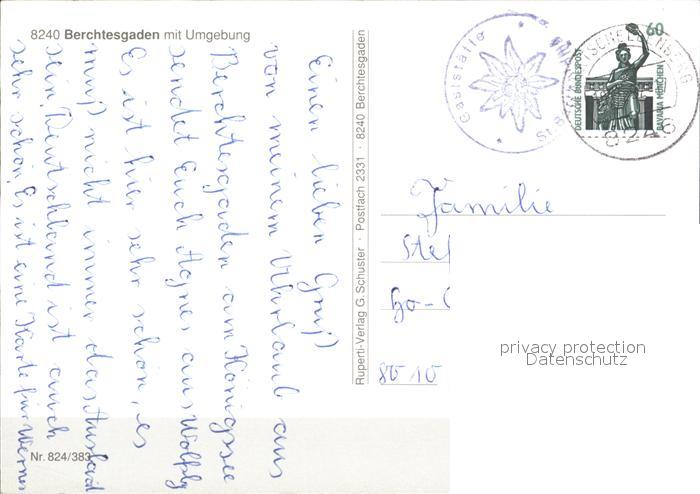 8240 Berchtesgaden mit Umgebung
Einen lieben Gruß
von meinem Uhrlaub aus
Berchtesgaden am Königssee
sendet Euch Agnes aus
Es ist hier sehr schön, es
muß nicht immer das Ausland
sein, Deutschland ist auch
sehr schön. Es ist eine Karte für Werner
Nr. 824/383
Ruperti-Verlag G. Schuster · Postfach 2331 · 8240 Berchtesgaden
Gaststätte
60
DEUTSCHE BUNDESPOST
BAVARIA MÜNCHEN
8240
Familie
Stef
8010
privacy protection
Datenschutz